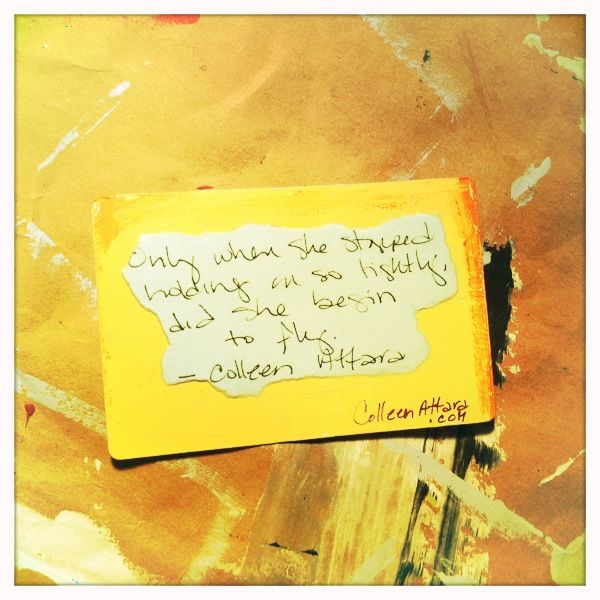 Only when she stopped
holding on so tightly,
did she begin
to fly.
- Colleen Attara
ColleenAttara
.com